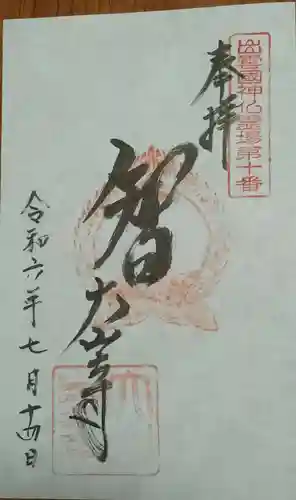 出雲國神仏霊場第十番
奉拝
智
大山寺
令和六年七月十四日